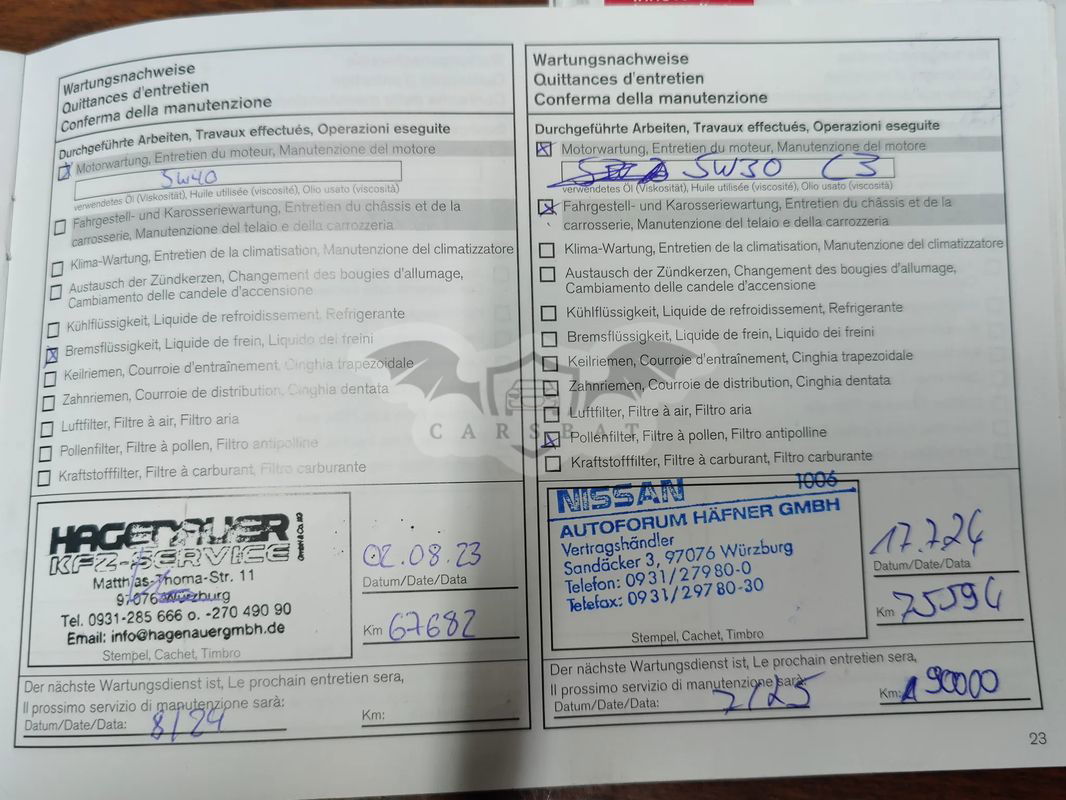 Wartungsnachweise
Quittances d'entretien
Conferma della manutenzione
Durchgeführte Arbeiten, Travaux effectués, Operazioni eseguite
Motorwartung, Entretien du moteur, Manutenzione del motore
5W40
verwendetes Öl (Viskosität), Huile utilisée (viscosité), Olio usato (viscosità)
Fahrgestell- und Karosseriewartung, Entretien du châssis et de la
carrosserie, Manutenzione del telaio e della carrozzeria
Klima-Wartung, Entretien de la climatisation, Manutenzione del climatizzatore
Austausch der Zündkerzen, Changement des bougies d'allumage,
Cambiamento delle candele d'accensione
Kühlflüssigkeit, Liquide de refroidissement, Refrigerante
Bremsflüssigkeit, Liquide de frein, Liquido dei freini
Keilriemen, Courroie d'entraînement, Cinghia trapezoidale
Zahnriemen, Courroie de distribution, Cinghia dentata
Luftfilter, Filtre à air, Filtro aria
Pollenfilter, Filtre à pollen, Filtro antipolline
Kraftstofffilter, Filtre à carburant, Filtro carburante
HAGENAUER
KFZ-SERVICE
GmbH & Co. KG
Matthias-Thoma-Str. 11
97076 Würzburg
Tel. 0931-285 666 o. -270 490 90
Email: info@hagenauergmbh.de
Stempel, Cachet, Timbro
02.08.23
Datum/Date/Data
Km 67682
Der nächste Wartungsdienst ist, Le prochain entretien sera,
Il prossimo servizio di manutenzione sarà:
Datum/Date/Data: 8/24
Km:
Wartungsnachweise
Quittances d'entretien
Conferma della manutenzione
Durchgeführte Arbeiten, Travaux effectués, Operazioni eseguite
Motorwartung, Entretien du moteur, Manutenzione del motore
5W30 C3
verwendetes Öl (Viskosität), Huile utilisée (viscosité), Olio usato (viscosità)
Fahrgestell- und Karosseriewartung, Entretien du châssis et de la
carrosserie, Manutenzione del telaio e della carrozzeria
Klima-Wartung, Entretien de la climatisation, Manutenzione del climatizzatore
Austausch der Zündkerzen, Changement des bougies d'allumage,
Cambiamento delle candele d'accensione
Kühlflüssigkeit, Liquide de refroidissement, Refrigerante
Bremsflüssigkeit, Liquide de frein, Liquido dei freini
Keilriemen, Courroie d'entraînement, Cinghia trapezoidale
Zahnriemen, Courroie de distribution, Cinghia dentata
Luftfilter, Filtre à air, Filtro aria
Pollenfilter, Filtre à pollen, Filtro antipolline
Kraftstofffilter, Filtre à carburant, Filtro carburante
NISSAN 1006
AUTOFORUM HÄFNER GMBH
Vertragshändler
Sandäcker 3, 97076 Würzburg
Telefon: 0931/27980-0
Telefax: 0931/29780-30
Stempel, Cachet, Timbro
17.7.24
Datum/Date/Data
Km 75594
Der nächste Wartungsdienst ist, Le prochain entretien sera,
Il prossimo servizio di manutenzione sarà:
Datum/Date/Data: 7/25
Km: 90000
23
CARSBAT